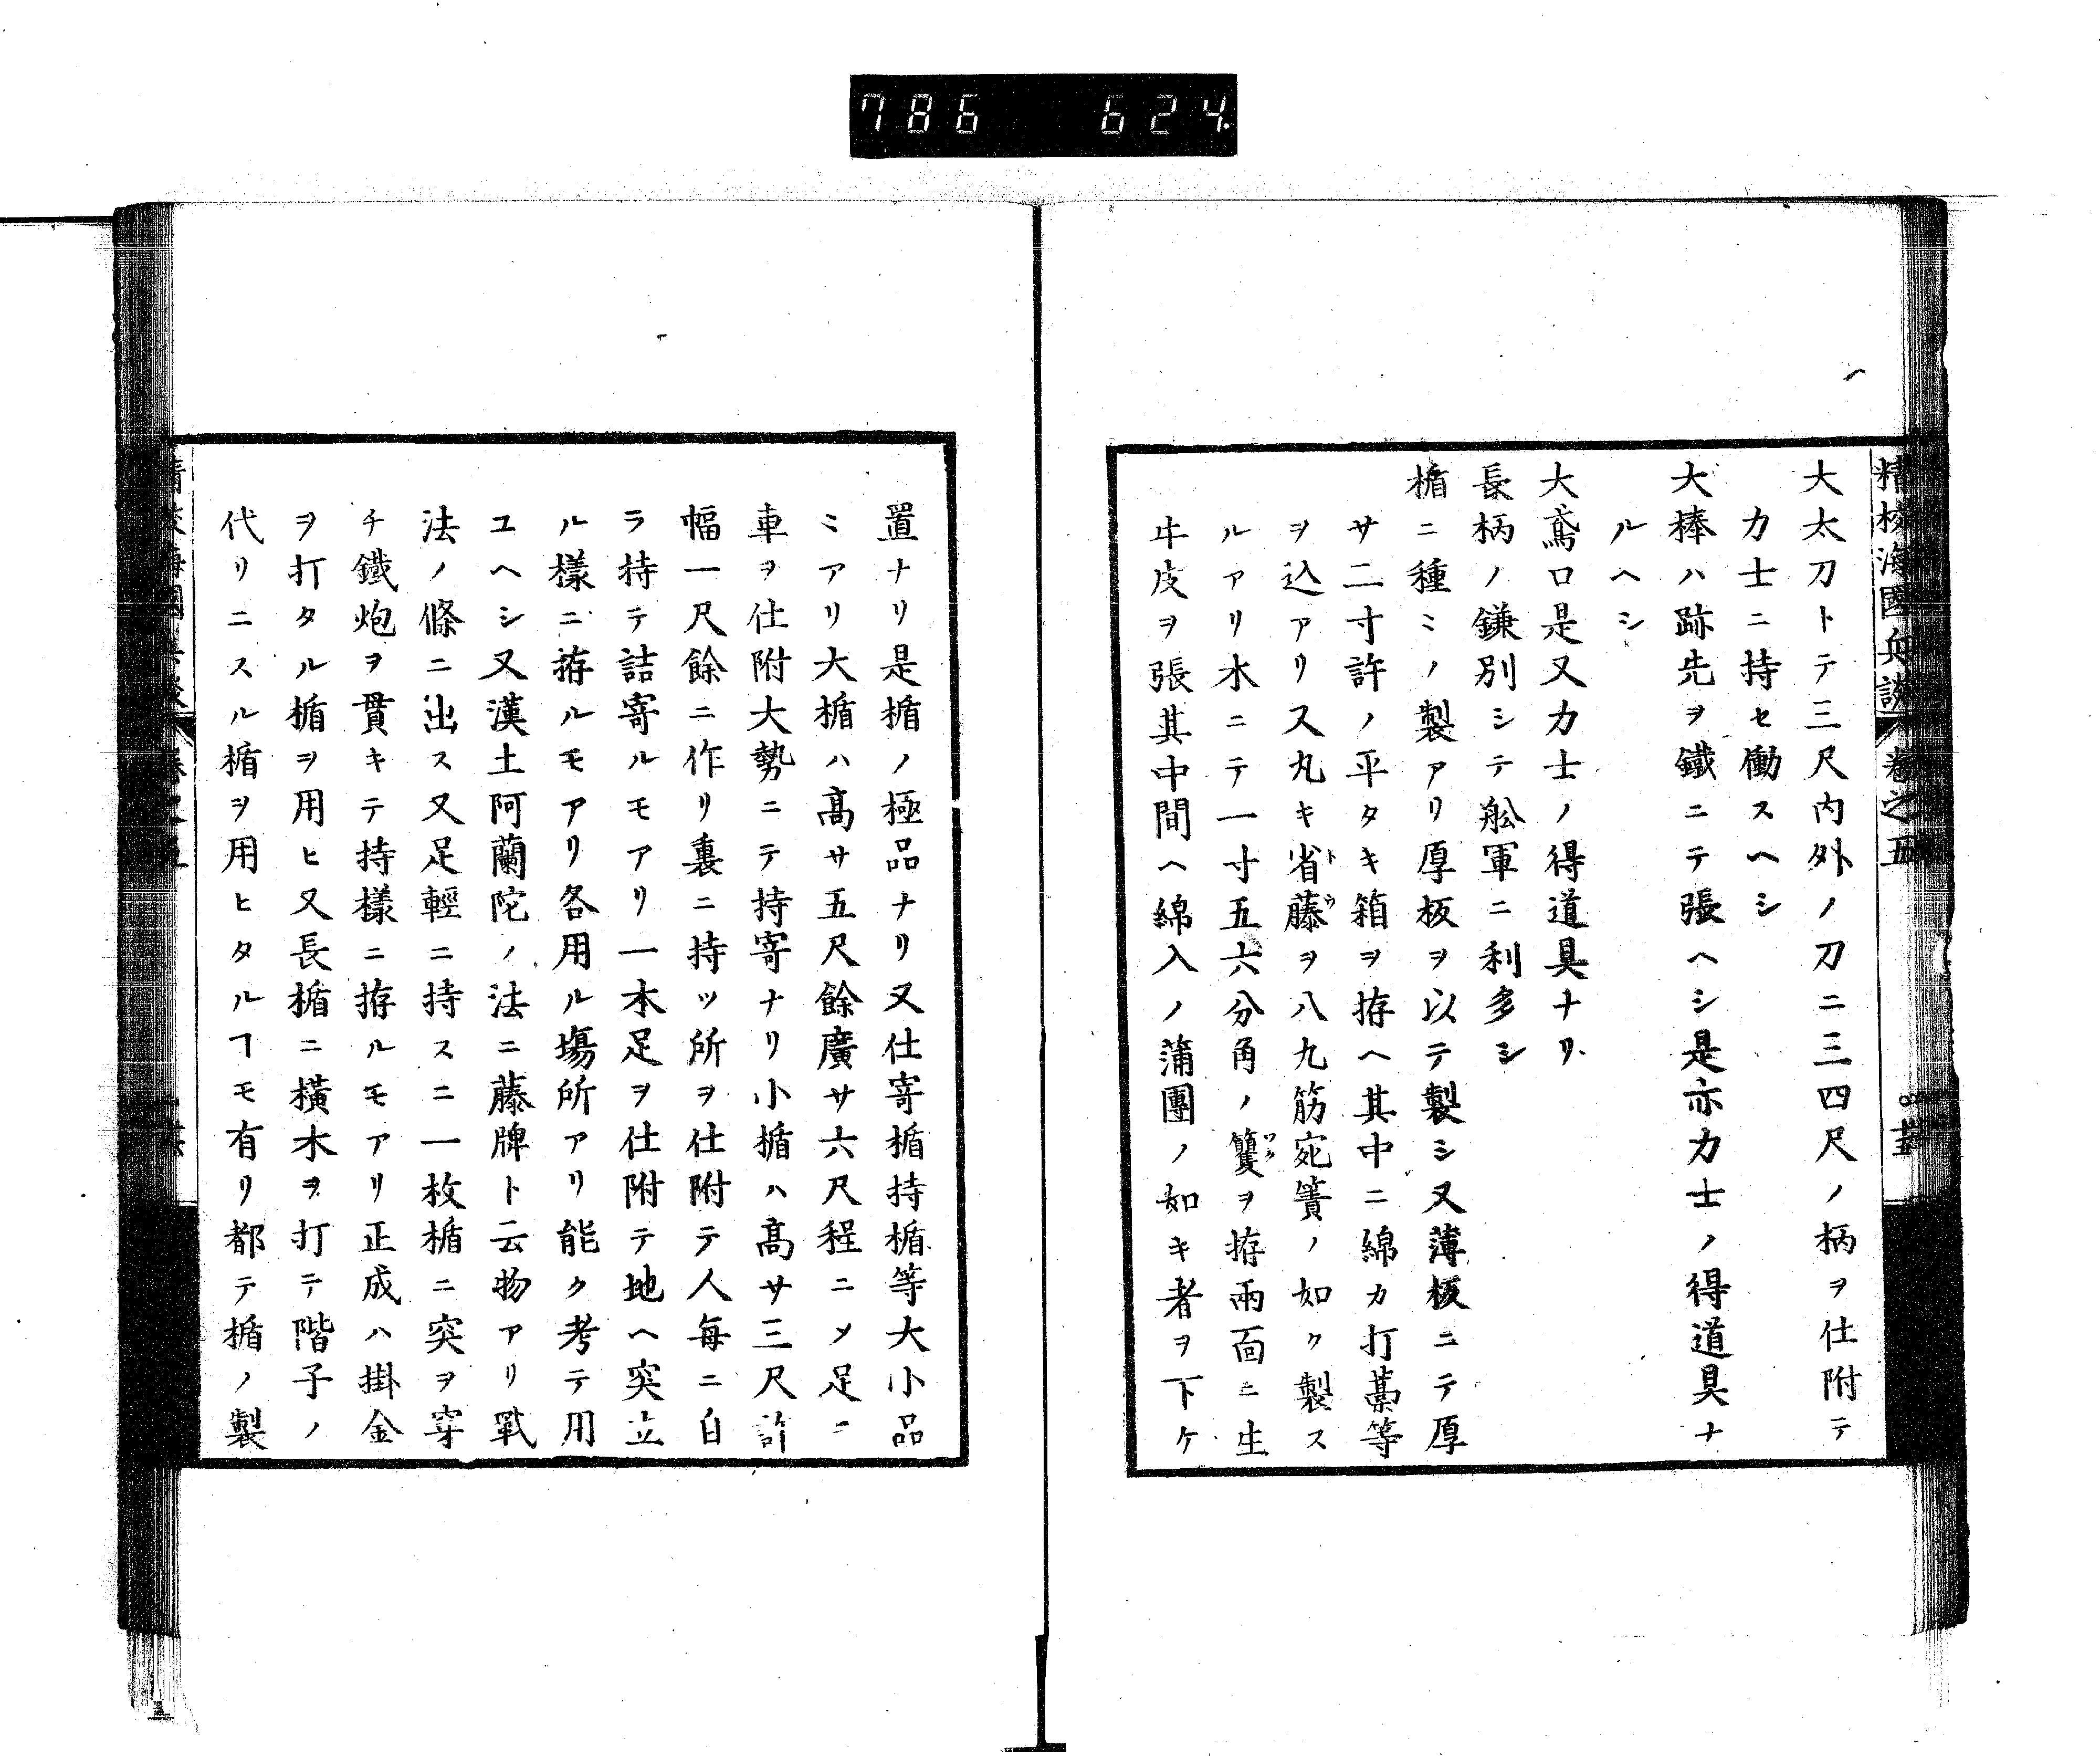 786 624
精校海國兵談 卷之五
大太刀トテ三尺内外ノ刀ニ三四尺ノ柄ヲ仕附テ
力士ニ持セ働スヘシ
大棒ハ跡先ヲ鐵ニテ張ヘシ是亦力士ノ得道具ナ
ルヘシ
大鳶口是又力士ノ得道具ナリ
長柄ノ鎌別シテ舩軍ニ利多シ
楯ニ種ミノ製アリ厚板ヲ以テ製シ又薄板ニテ厚
サ二寸許ノ平タキ箱ヲ拵ヘ其中ニ綿カ打藁等
ヲ込アリ又丸キ省藤ヲ八九筋宛簀ノ如ク製ス
ルアリ木ニテ一寸五六分角ノ籰ヲ拵兩面ニ生
牛皮ヲ張其中間ヘ綿入ノ蒲團ノ如キ者ヲ下ケ
置ナリ是楯ノ極品ナリ又仕寄楯持楯等大小品
ミアリ大楯ハ高サ五尺餘廣サ六尺程ニメ足ニ
車ヲ仕附大勢ニテ持寄ナリ小楯ハ高サ三尺許
幅一尺餘ニ作リ裏ニ持ッ所ヲ仕附テ人毎ニ自
ラ持テ詰寄ルモアリ一本足ヲ仕附テ地ヘ突立
ル樣ニ拵ルモアリ各用ル塲所アリ能ク考テ用
ユヘシ又漢土阿蘭陀ノ法ニ藤牌ト云物アリ戰
法ノ條ニ出ス又足輕ニ持スニ一枚楯ニ突ヲ穿
チ鐵炮ヲ貫キテ持樣ニ拵ルモアリ正成ハ掛金
ヲ打タル楯ヲ用ヒ又長楯ニ横木ヲ打テ階子ノ
代リニスル楯ヲ用ヒタルヿモ有リ都テ楯ノ製